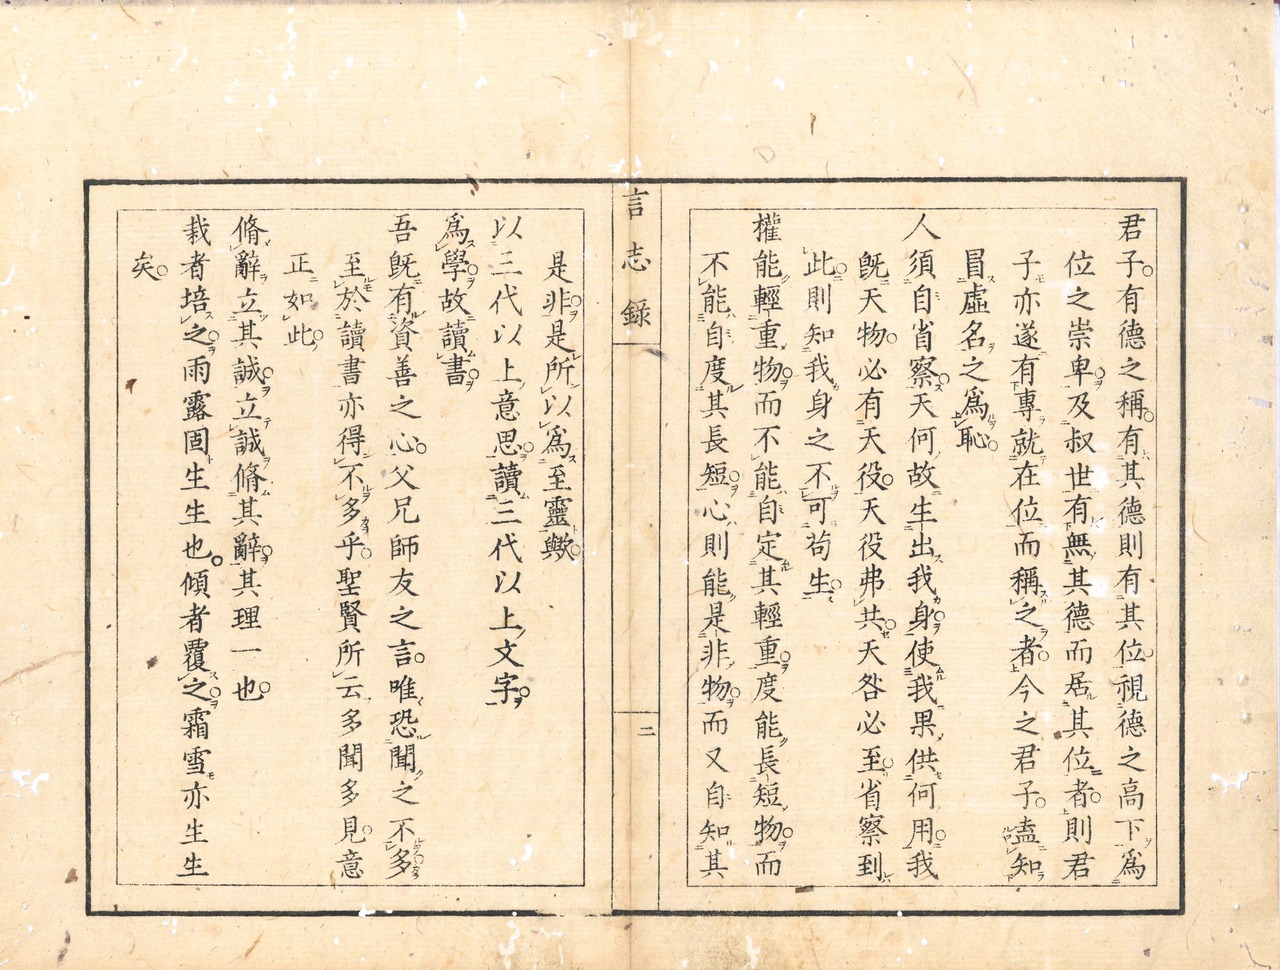 君子有德之稱有其德則有其位視德之高下爲
位之崇卑及叔世有無其德而居其位者則君
子亦遂有專就在位而稱之者今之君子盍知
冒虛名之爲恥
人須自省察天何故生出我身使我果供何用我
既天物必有天役天役弗共天咎必至省察到
此則知我身之不可苟生
權能輕重物而不能自定其輕重度能長短物而
不能自度其長短心則能是非物而又自知其
言志錄
二
是非是所以爲至靈歟
以三代以上意思讀三代以上文字
爲學故讀書
吾既有資善之心父兄師友之言唯恐聞之不多
至於讀書亦得不多乎聖賢所云多聞多見意
正如此
脩辭立其誠立誠脩其辭其理一也
栽者培之雨露固生生也傾者覆之霜雪亦生生
矣